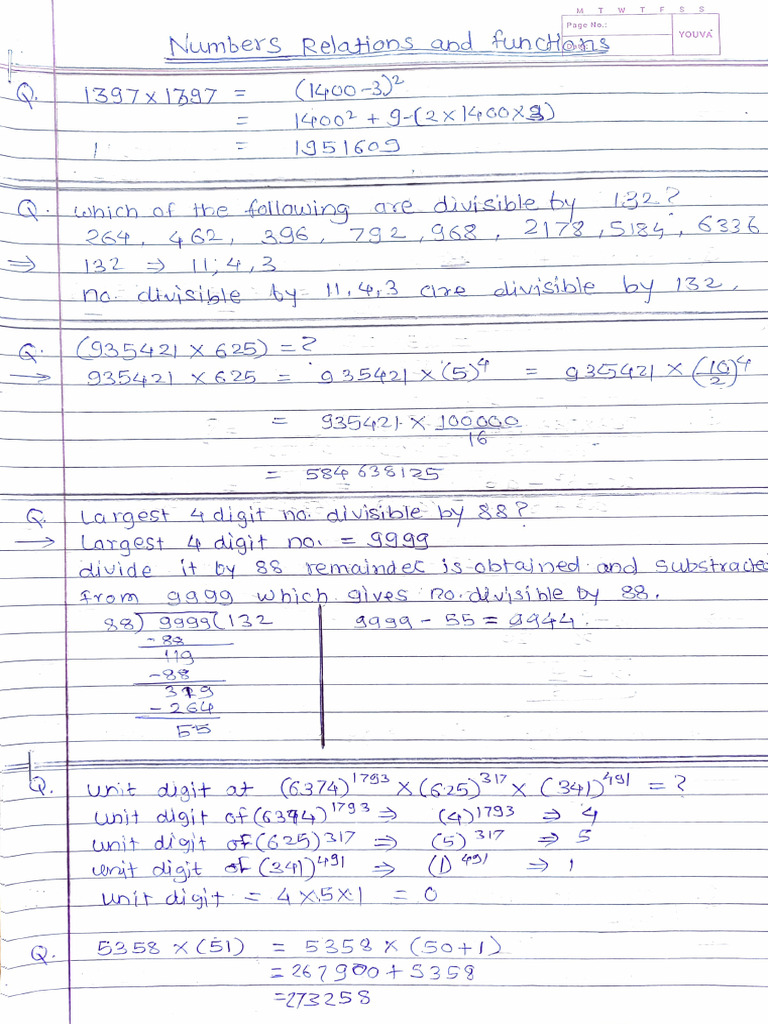 M T W T F S S
Page No.:
YOUVA
Numbers Relations and functions
Q. 1397 × 1397 = (1400-3)²
= 1400² + 9-(2×1400×3)
1 = 1951609
Q. which of the following are divisible by 132?
264, 462, 396, 792, 968, 2178, 5184, 6336
⇒ 132 ⇒ 11, 4, 3
no. divisible by 11, 4, 3 are divisible by 132.
Q. (935421 × 625) = ?
→ 935421 × 625 = 935421 × (5)⁴ = 935421 × (10/2)⁴
= 935421 × 100000/16
= 584638125
Q. Largest 4 digit no. divisible by 88?
→ Largest 4 digit no. = 9999
divide it by 88 remainder is obtained and substracted
from 9999 which gives no. divisible by 88.
88) 9999 (132 9999 - 55 = 9944
-88
119
-88
319
-264
55
Q. unit digit at (6374)¹⁷⁹³ × (625)³¹⁷ × (341)⁴⁹¹ = ?
unit digit of (6374)¹⁷⁹³ ⇒ (4)¹⁷⁹³ ⇒ 4
unit digit of (625)³¹⁷ ⇒ (5)³¹⁷ ⇒ 5
unit digit of (341)⁴⁹¹ ⇒ (1)⁴⁹¹ ⇒ 1
unit digit = 4 × 5 × 1 = 0
Q. 5358 × (51) = 5358 × (50+1)
= 267900 + 5358
= 273258